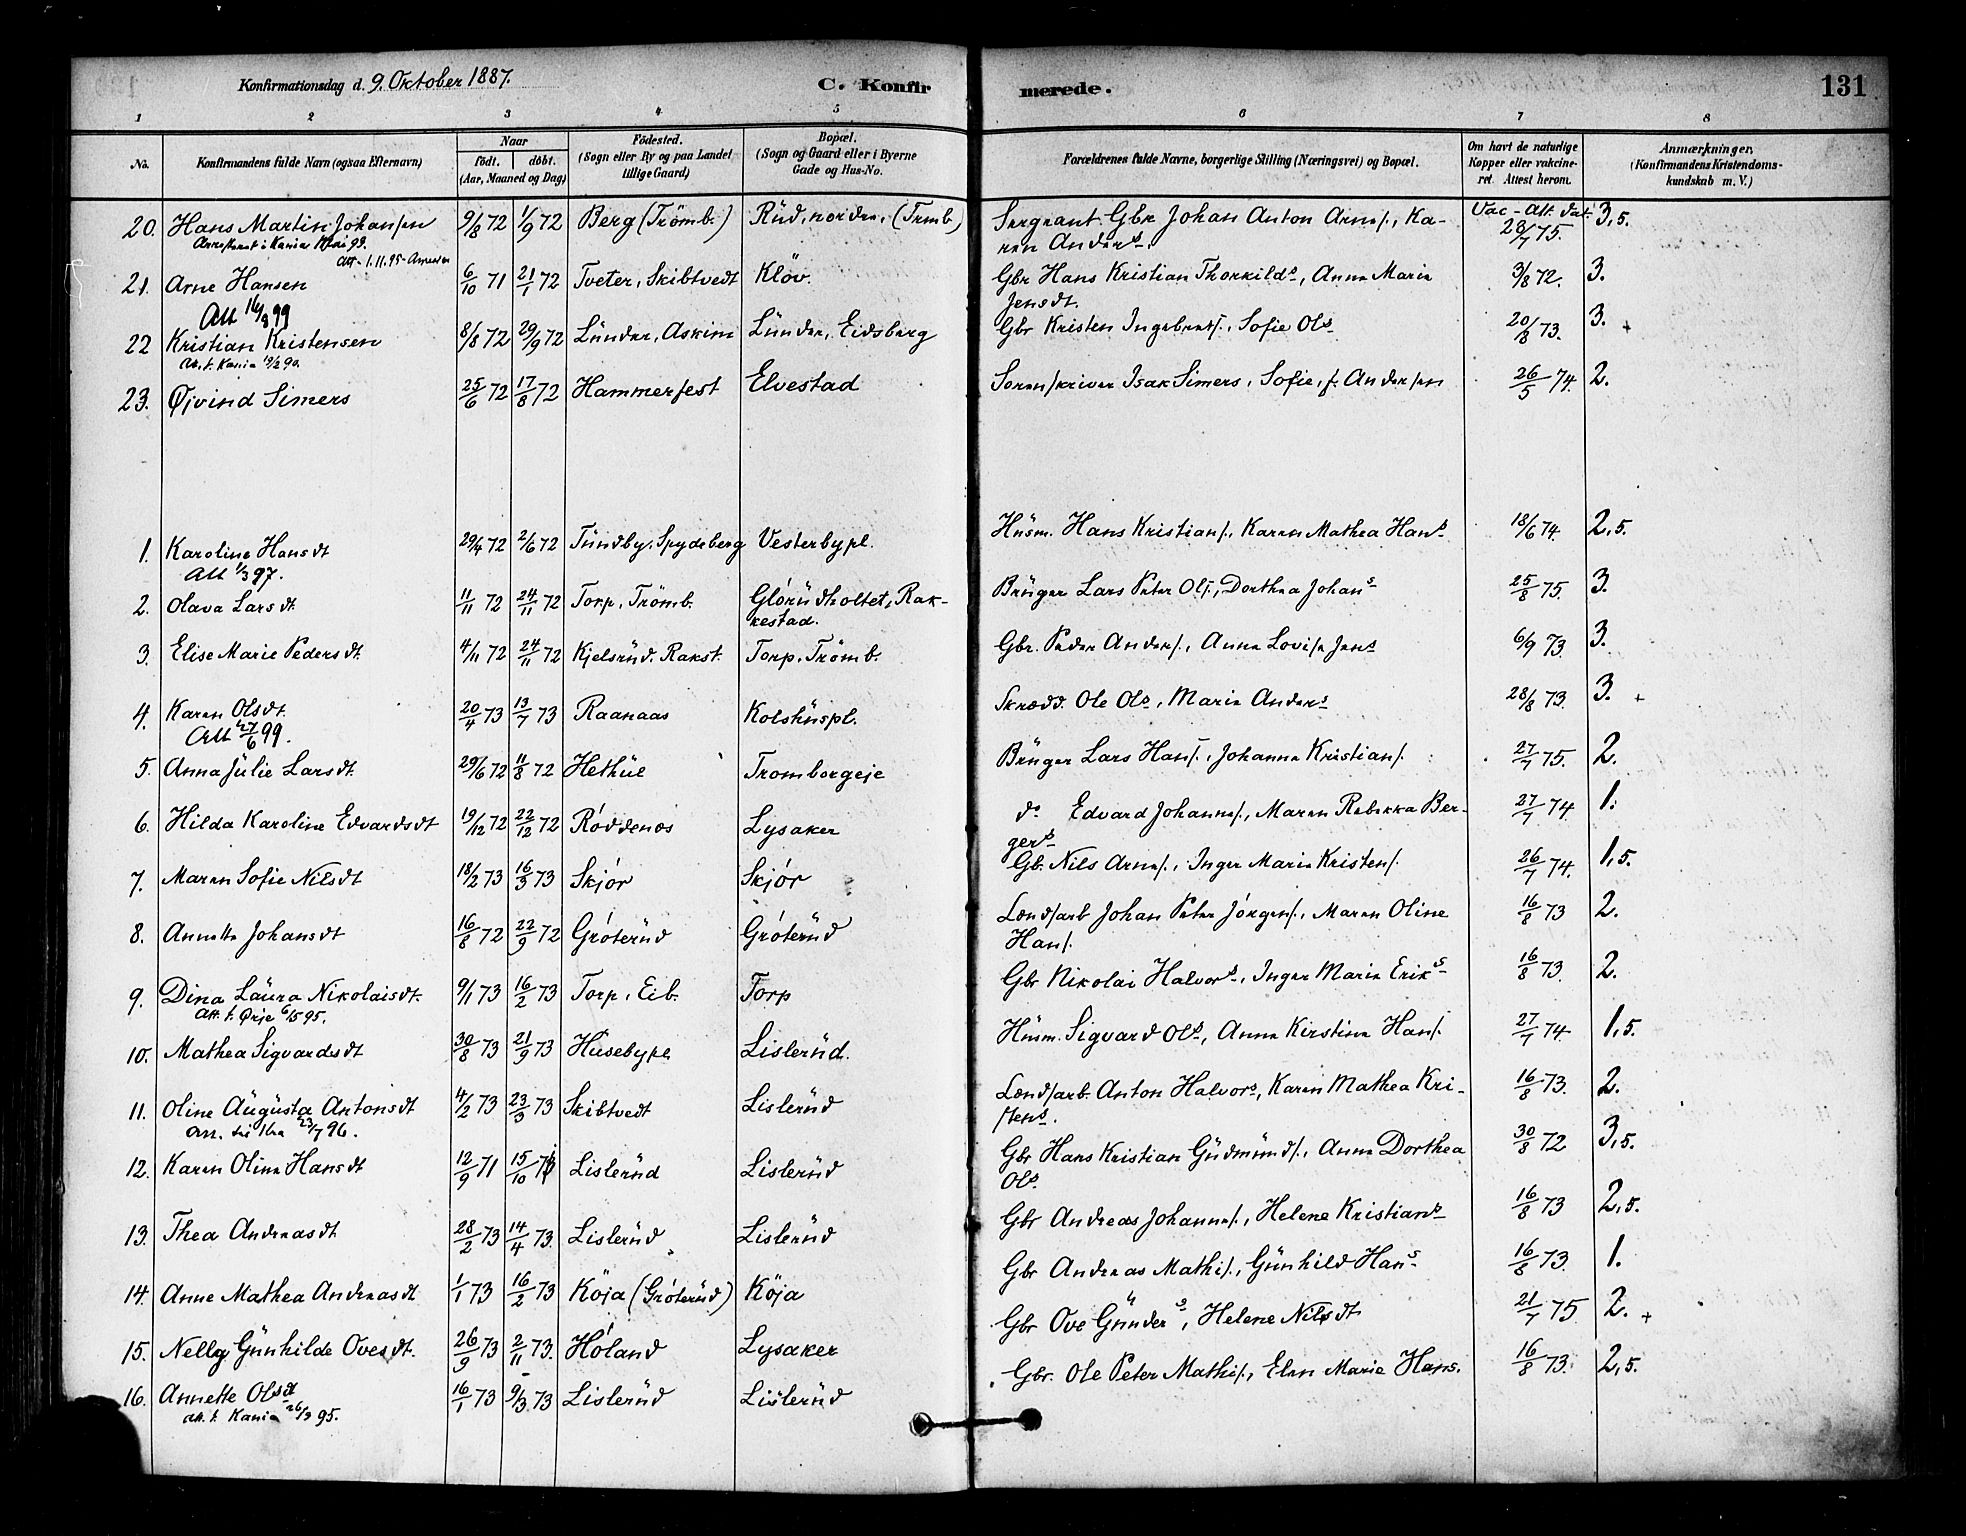 Konfirmationsdag d. 9. Oktober 1887.
C. Konfirmerede.
131
1 2 3 4 5 6 7 8
No.
Konfirmandens fulde Navn (ogsaa Efternavn)
Naar
födt. döbt.
(Aar, Maaned og Dag)
Födested.
(Sogn eller By og paa Landet
tillige Gaard)
Bopæl.
(Sogn og Gaard eller i Byerne
Gade og Hus-No.
Forældrenes fulde Navne, borgerlige Stilling (Næringsvei) og Bopæl.
Om havt de naturlige
Kopper eller vakcine-
ret. Attest herom.
Anmærkninger.
(Konfirmandens Kristendoms-
kundskab m. V.)
20. Hans Martin Johansen 9/8 72 1/9 72 Berg (Trömb.) Rüd, nordre, (Trmb.) Sergeant Gbr Johan Anton Arns/., Ka- Vac-Att. dat. 3,5.
ren Anders. 28/7 75.
Att. 1.11.95
21. Arne Hansen 6/10 71 21/1 72 Tveter, Skibtvedt Klöv. Gbr Hans Kristian Thorkilds, Anne Marie 3/8 72. 3.
Jensdt.
Att 16/8 99
22 Kristian Kristensen 8/8 72 29/9 72 Lünder, Askim Lünder, Eidsberg Gbr Kristen Ingebrets/., Sofie Ols 20/8 73. 3. +
Att. t. Kania 19/2 90.
23. Øjvind Simers 25/6 72 17/8 72 Hammerfest Elvestad Sorenskriver Isak Simers, Sofie, f. Andersen 26/5 74. 2.
1. Karoline Hansdt 29/4 72 2/6 72 Tündby, Spydeberg Vesterbypl. Hüsm. Hans Kristians/., Karen Mathea Hans 18/6 74. 2,5.
Att 1/3 97.
2. Olava Larsdt. 11/11 72 24/11 72 Torp, Trömb. Glórüdholtet, Rak- Brüger Lars Peter Ols/., Dorthea Johans 25/8 75. 3.
kestad.
3. Elise Marie Pedersdt. 4/11 72 24/11 72 Kjelsrüd. Rakst. Torp. Trömb. Gbr. Peder Anders/., Anne Lovise Jens 6/9 73. 3.
4. Karen Olsdt. 20/4 73 13/7 73 Raanaas Kolshüspl. Skrædd. Ole Ols, Marie Anders 28/8 73. 3. +
Att 27/6 99.
5. Anna Jülie Larsdt. 29/6 72 11/8 72 Hethüe Tromborgeje Brüger Lars Hans/., Johanne Kristians/. 27/7 75. 2.
6. Hilda Karoline Edvardsdt 19/12 72 22/12 72 Róddenæs Lysaker do Edvard Johannes/., Maren Rebekka Ber- 27/7 74 1.
gers
7. Maren Sofie Nilsdt 18/2 73 16/3 73 Skjór Skjór Gb. Nils Arnes/., Inger Marie Kristens/. 26/7 74. 1,5.
8. Annette Johansdt 16/8 72 22/9 72 Gróterüd Gróterüd Lænds/arb Johan Peter Jórgens/., Maren Oline 16/8 73 2.
Hans/.
9. Dina Läura Nikolaisdt. 9/1 73 16/2 73 Torp, Eib. Torp Gbr Nikolai Halvors, Inger Marie Eriks 16/8 73. 2.
Att. t. Ørje 6/5 95.
10. Mathea Sigvardsdt 30/8 73 21/9 73 Hüsebype Lislerüd. Hüsm. Sigvard Ols, Anne Kirstine Hans/. 27/7 74. 1,5.
11. Oline Aügüsta Antonsdt 4/2 73 23/3 73 Skibtvedt Lislerüd Lænds/arb. Anton Halvors, Karen Mathea Kri- 16/8 73. 2.
stens.
23/7 96.
12. Karen Oline Hansdt 12/9 71 15/10 71 Lislerüd Lislerüd Gbr Hans Kristian Güdmünds/., Anne Dorthea 30/8 72 3,5.
Ols.
13. Thea Andreasdt 28/2 73 14/4 73. Lislerüd Lislerüd Gbr Andreas Johannes/., Helene Kristians 16/8 73 2,5.
14. Anne Mathea Andreasdt 1/1 73 16/2 73 Köja (Gróterüd) Köja Gbr Andreas Mathis/., Günhild Hans 16/8 73. 1.
15. Nelly Günhilde Ovesdt. 26/9 73 2/11 73. Hóland Lysaker Gbr Ove Günders, Helene Nilsdt 21/7 75 2. +
16. Annette Olsdt 16/1 73 9/3 73 Lislerüd Lislerüd Gbr. Ole Peter Mathis/., Elen Marie Hans. 16/8 73. 2,5.
Att. t. Kania 26/3 95.